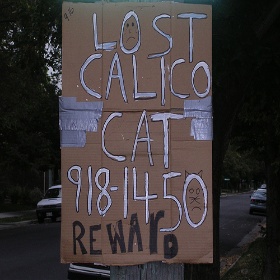 LOST
CALICO
CAT
918-1450
REWARD